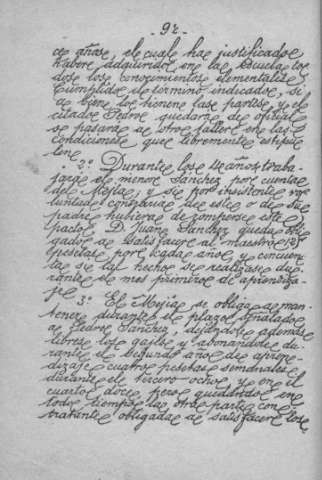 - 92 -
ce años, el cual ha justificado
haber adquirido en la escuela to
dos los conocimientos elementales.
Cumplido el término indicado, si
a bien lo tienen las partes, y el
citado Pedro quedará de oficial
o se pasará a otro taller en las
condiciones que libremente estipu
len.
2º Durante los 4 años traba
jará el menor Sánchez por cuenta
del Mejía; y si por insistente vo
luntad contraria de este o de su
padre hubiera de romperse este
pacto, D. Juan Sánchez queda obli
gado a satisfacer al maestro 125
pesetas por cada año, y cincuen
ta si tal hecho se realizase du
rante el mes primero de aprendiza
je.
3º El Mejía se obliga a man
tener durante el plazo señalado
a Pedro Sánchez, dejándole además
libres los gajes y abonándole du
rante el segundo año de apren
dizaje cuatro pesetas semanales,
durante el tercero ocho, y en el
cuarto doce, pero quedando en
todo tiempo la otra parte con
tratante obligada a satisfacer los